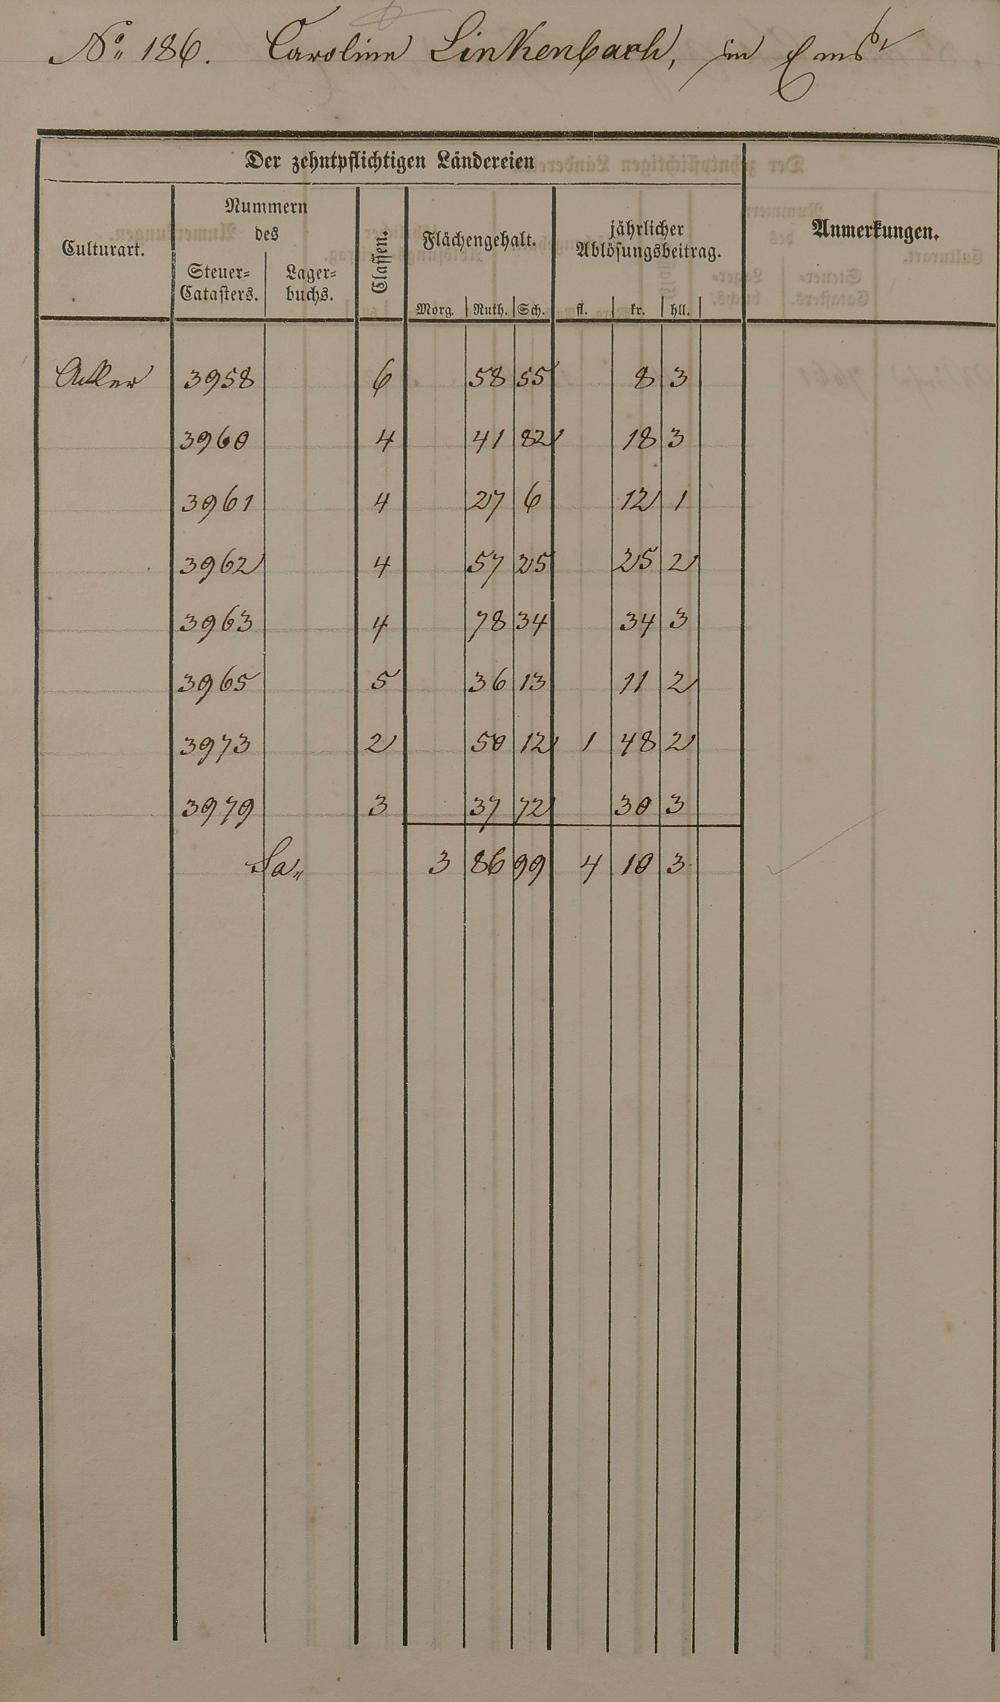 No. 186. Caroline Linkenbach, in Ems
Der zehntpflichtigen Ländereien
Culturart.
Nummern
des
Steuer-
Catasters.
Lager-
buchs.
Classen.
Flächengehalt.
Morg. Ruth. Sch.
jährlicher
Ablösungsbeitrag.
fl. kr. hll.
Anmerkungen.
Acker 3958 6 58 55 8 3
3960 4 41 82 18 3
3961 4 27 6 12 1
3962 4 57 25 25 2
3963 4 78 34 34 3
3965 5 36 13 11 2
3973 2 50 12 1 48 2
3979 3 37 72 30 3
Sa. 3 86 99 4 10 3